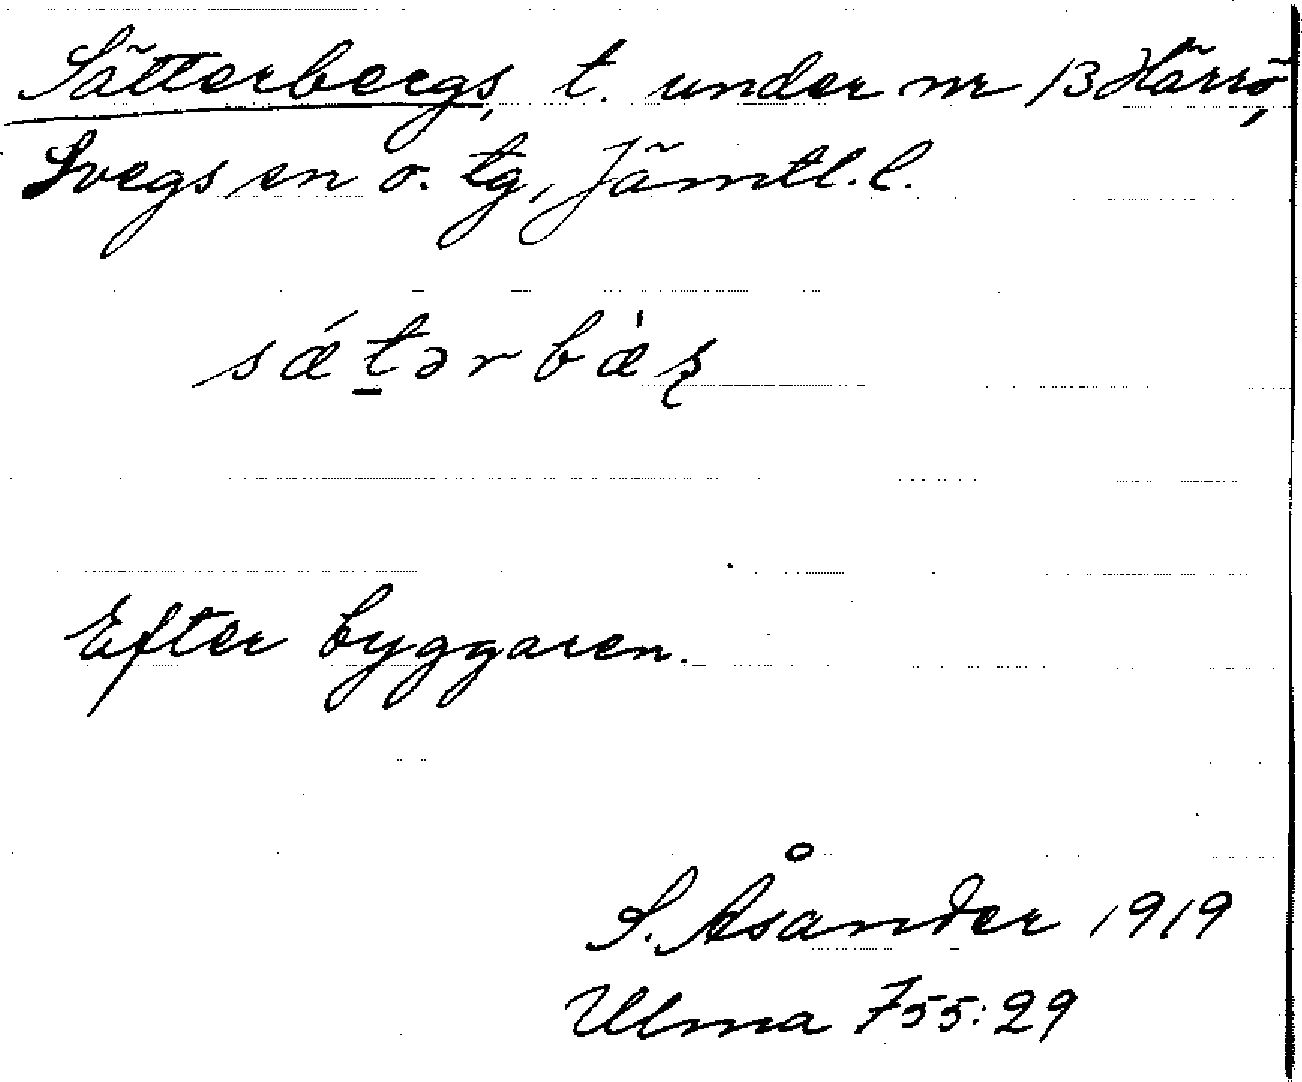 Sätterbergs, t. under nr 13 Härrö,
Svegs sn o. tg, Jämtl. l.
sǽt̲ərbæ̀ʂ
Efter byggaren.
S. Åsander 1919
Ulma 755:29